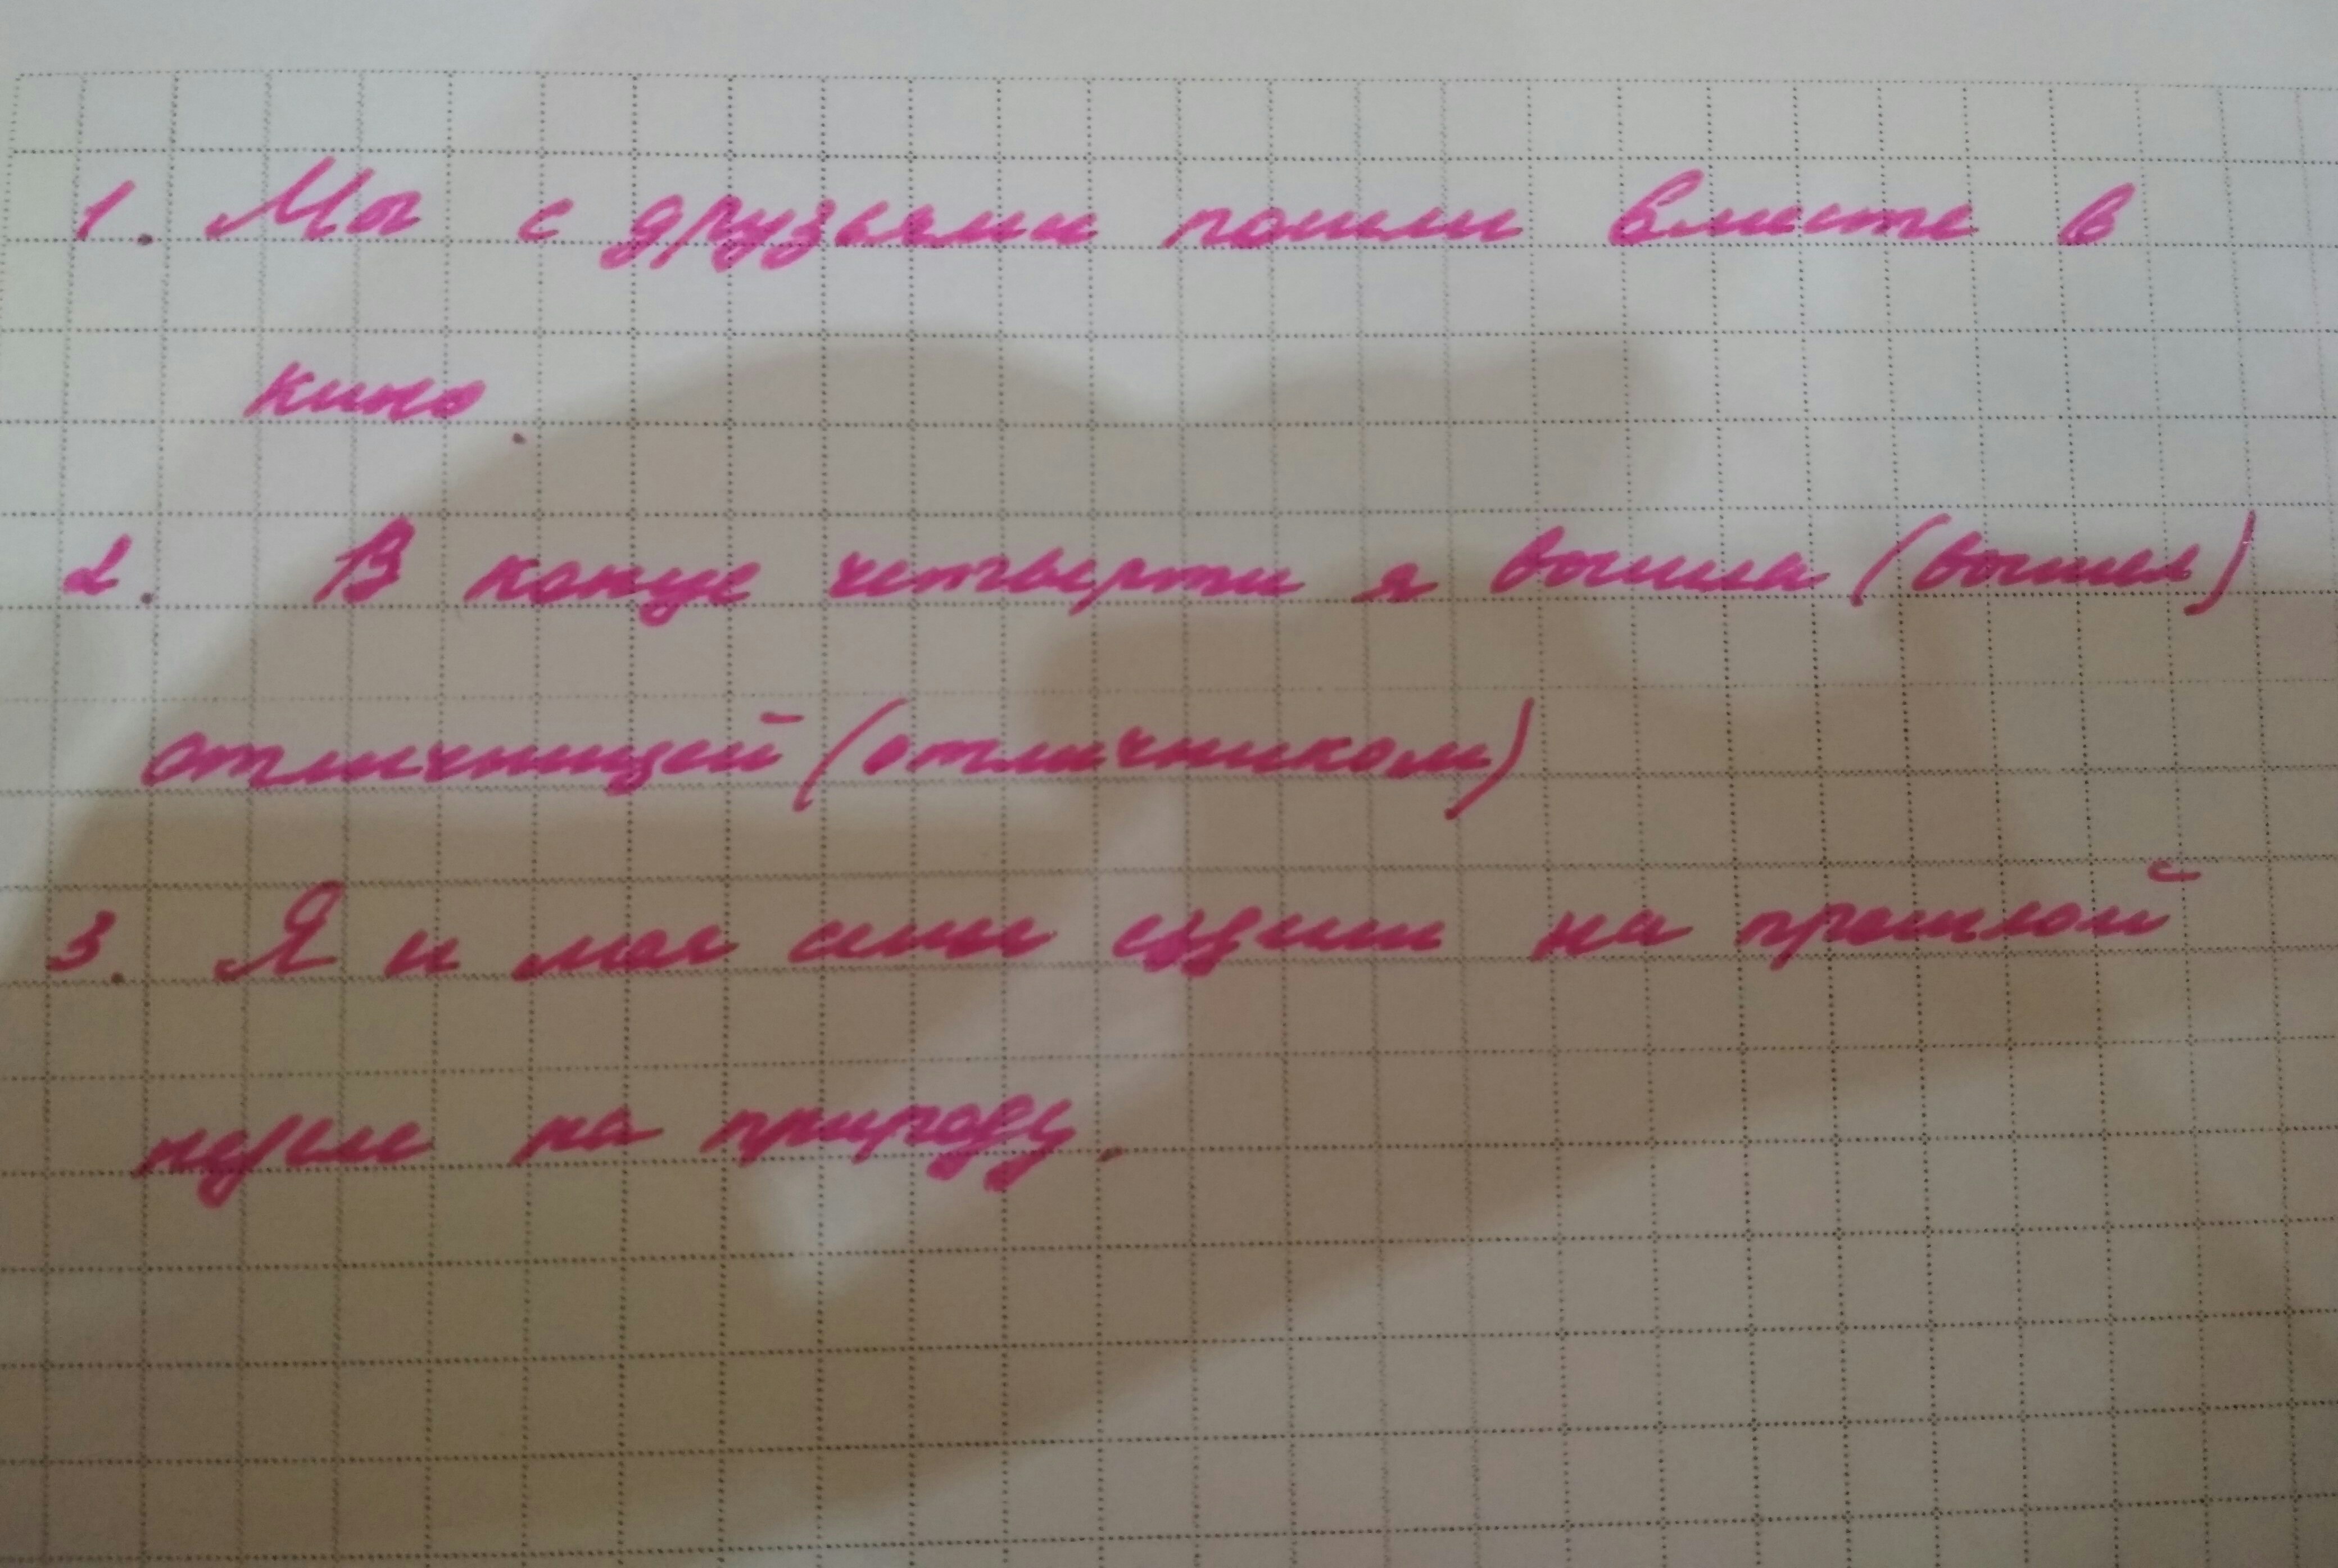 1. Мы с друзьями пошли вместе в
кино.
2. В конце четверти я вышла (вышел)
отличницей (отличником)
3. Я и моя семья ездили на прошлой
неделе на природу.